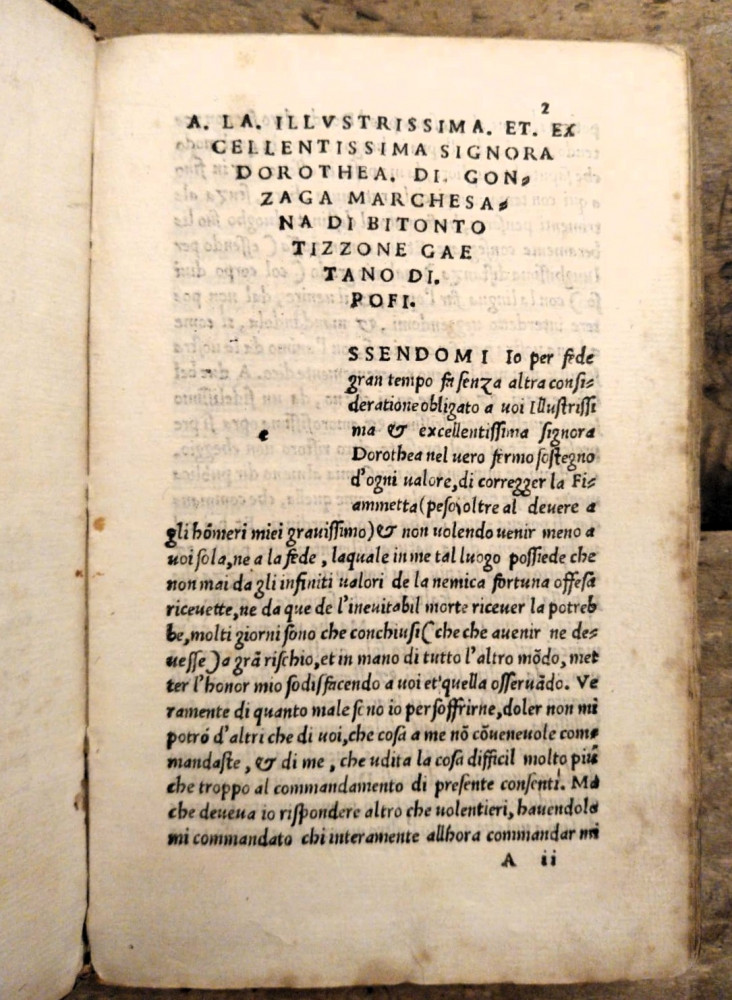 2
A. LA. ILLVSTRISSIMA. ET. EX
CELLENTISSIMA SIGNORA
DOROTHEA. DI. GON⸗
ZAGA MARCHESA⸗
NA DI BITONTO
TIZZONE GAE
TANO DI.
POFI.
SSENDOMI Io per fede
gran tempo fa senza altra consi⸗
deratione obligato a uoi Illustrissi
e
ma & excellentissima signora
Dorothea nel uero fermo sostegno
d'ogni ualore, di corregger la Fi⸗
ammetta (peso, oltre al deuere a
gli hômeri miei grauissimo) & non uolendo uenir meno a
uoi sola, ne a la fede, laquale in me tal luogo possiede che
non mai da gli infiniti ualori de la nemica fortuna offesa
riceuette, ne da que de l'ineuitabil morte riceuer la potreb
be, molti giorni sono che conchiusi (che che auenir ne de⸗
uesse) a grã rischio, et in mano di tutto l'altro mõdo, met
ter l'honor mio sodisfacendo a uoi et quella osseruãdo. Ve
ramente di quanto male se no io per soffrirne, doler non mi
potrò d'altri che di uoi, che cosa a me nõ cõueneuole com⸗
mandaste, & di me, che udita la cosa difficil molto più
che troppo al commandamento di presente consentì. Ma
che deueua io rispondere altro che uolentieri, hauendola
mi commandato chi interamente allhora commandar mi
A ii